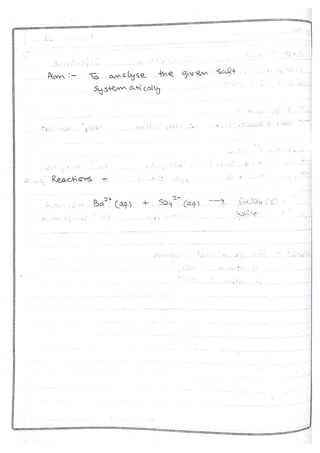 Aim :- To analyse the given salt
systematically
Reactions -
Ba²⁺ (aq) + SO₄²⁻ (aq) → BaSO₄ (s)
white